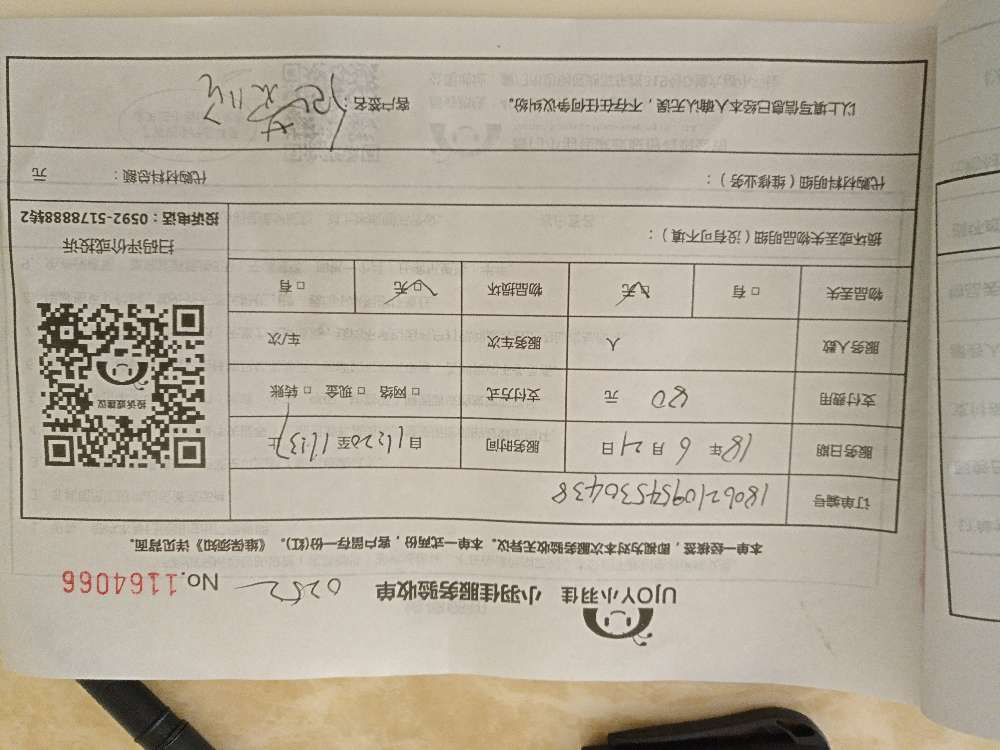 UJOY小羽佳 小羽佳服务验收单 0252 No.1164066
本单一经核签，即视为对本次服务验收无异议。本单一式两份，客户留存一份(红)。《维保须知》详见背面。
订单编号 180621095453 0438
服务日期 18年 6月21日 服务时间 自11:20至11:37止
支付费用 80 元 支付方式 □ 网络 □ 现金 □ 转账
服务人数 人 服务车次 车/次
物品丢失 □ 有 □ 无 物品损坏 □ 无 □ 有
投诉或建议
扫码评价或投诉
投诉电话：0592-5178888转2
损坏或丢失物品明细（没有可不填）：
代购材料明细（维修业务）： 代购材料总额： 元
以上填写信息已经本人确认无误，不存在任何争议纠纷。 客户签名：